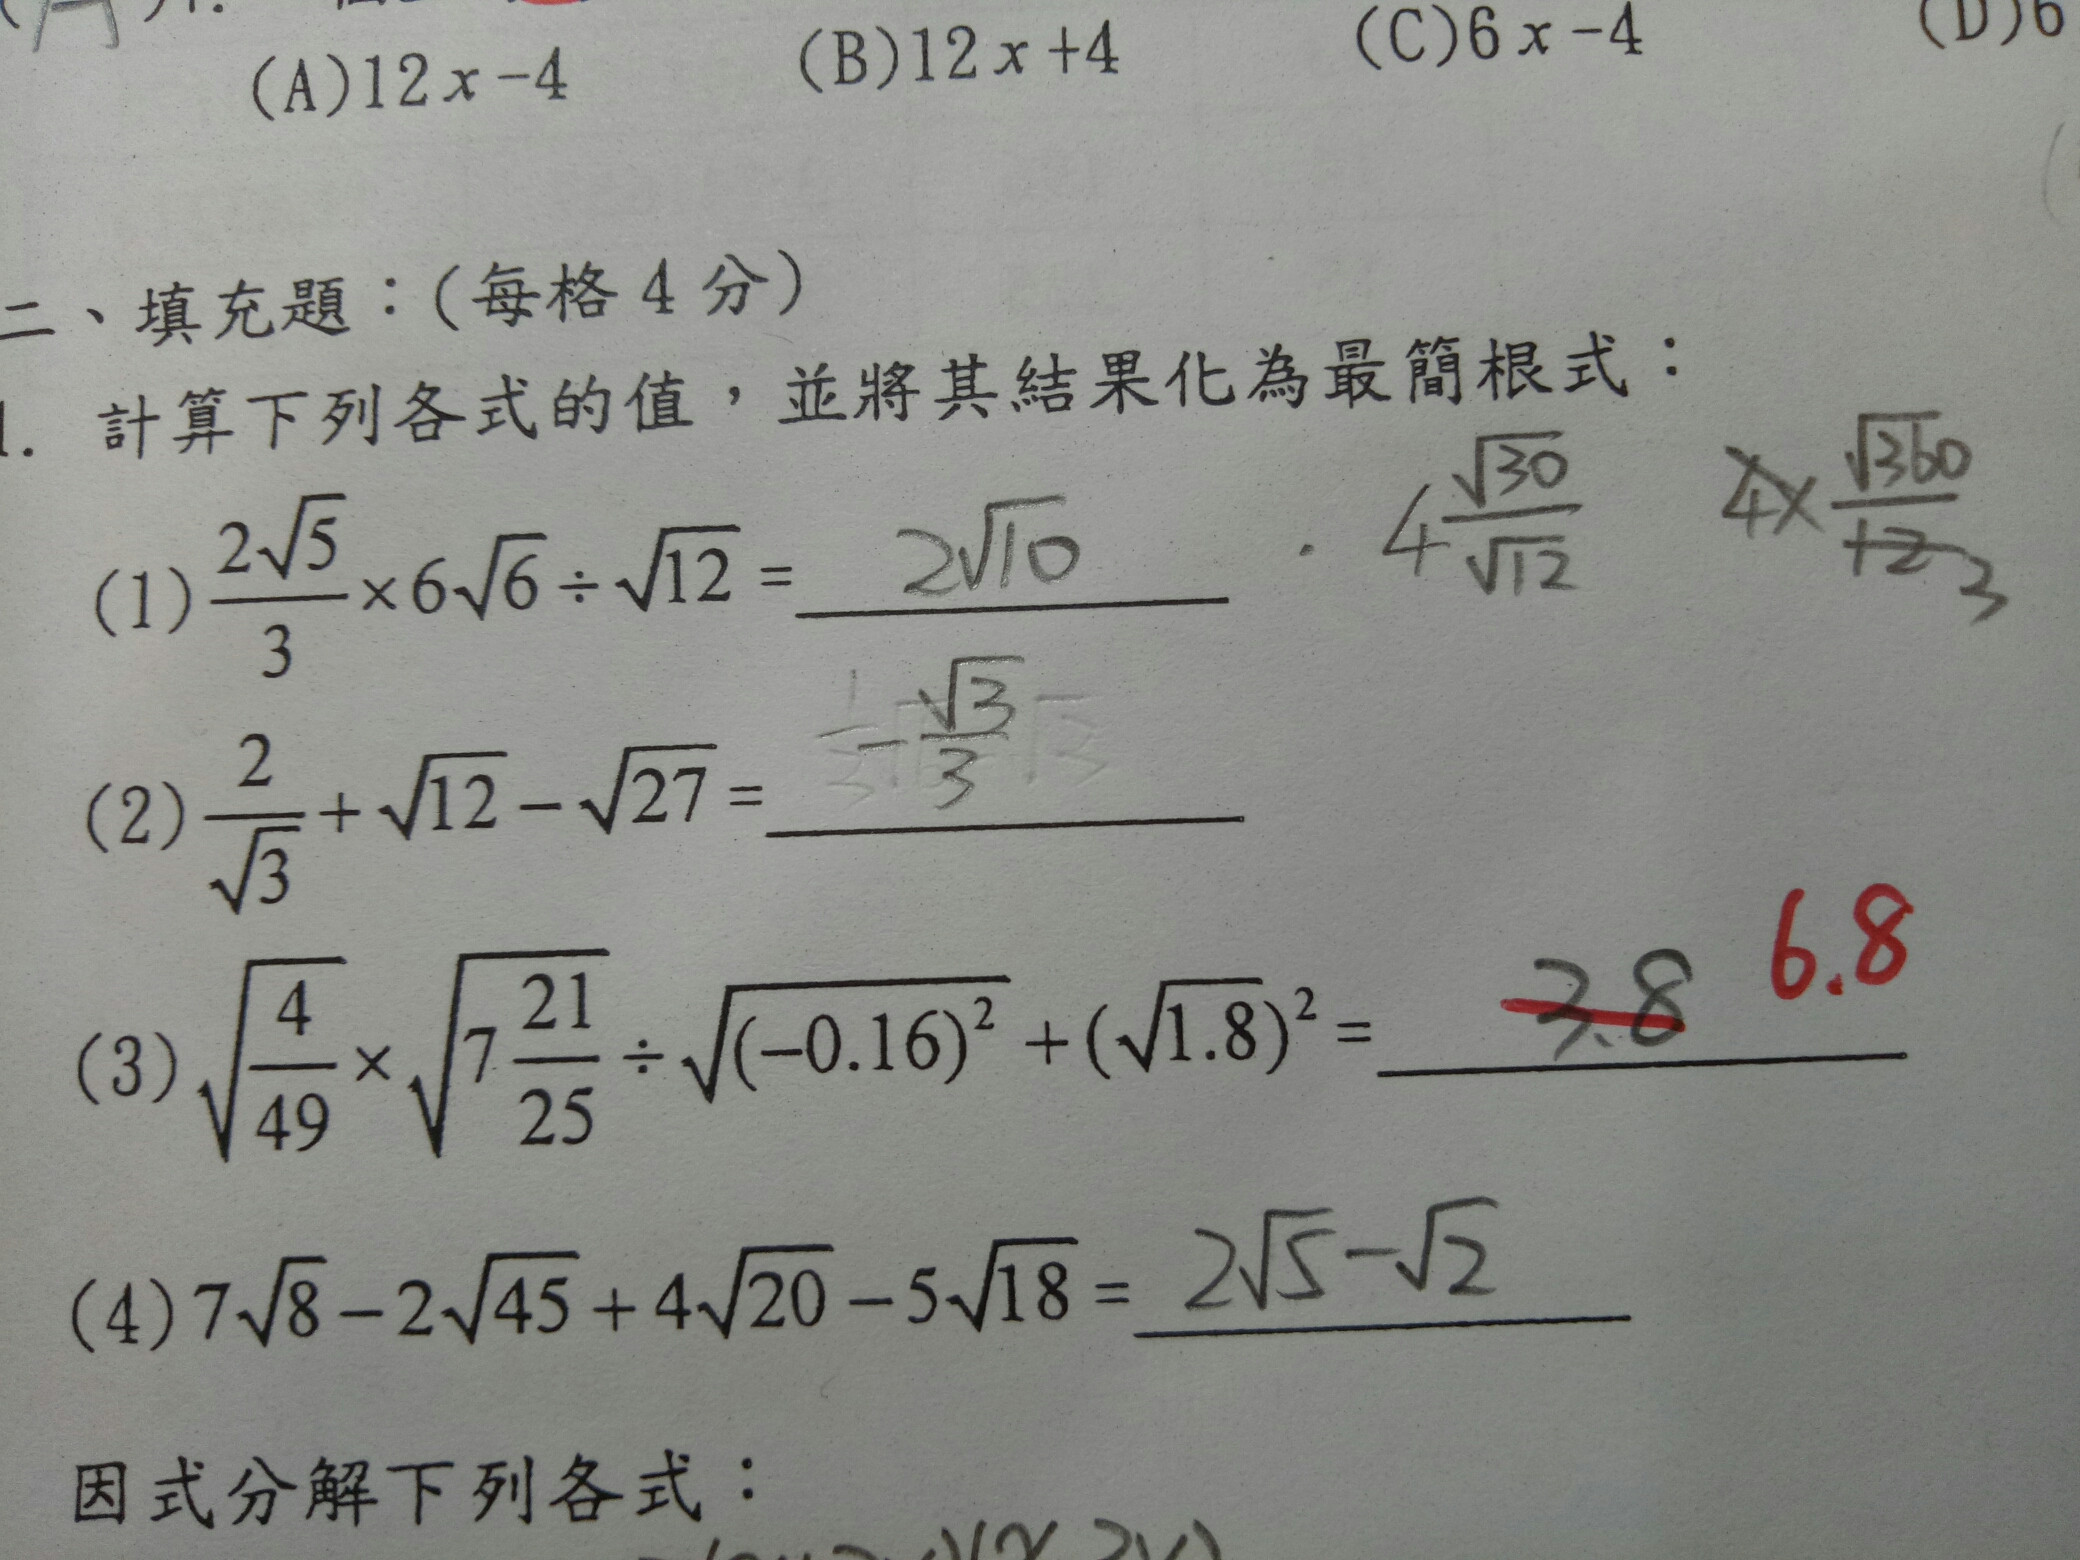 (A)12x-4 (B)12x+4 (C)6x-4 (D)6
二、填充題：(每格4分)
1. 計算下列各式的值，並將其結果化為最簡根式：
(1) 2√5/3 × 6√6 ÷ √12 = 2√10 4 √30/√12 4× √360/12 3
(2) 2/√3 + √12 - √27 = -√3/3
(3) √(4/49) × √(7 21/25) ÷ √((-0.16)²) + (√1.8)² = 3.8 6.8
(4) 7√8 - 2√45 + 4√20 - 5√18 = 2√5-√2
因式分解下列各式：